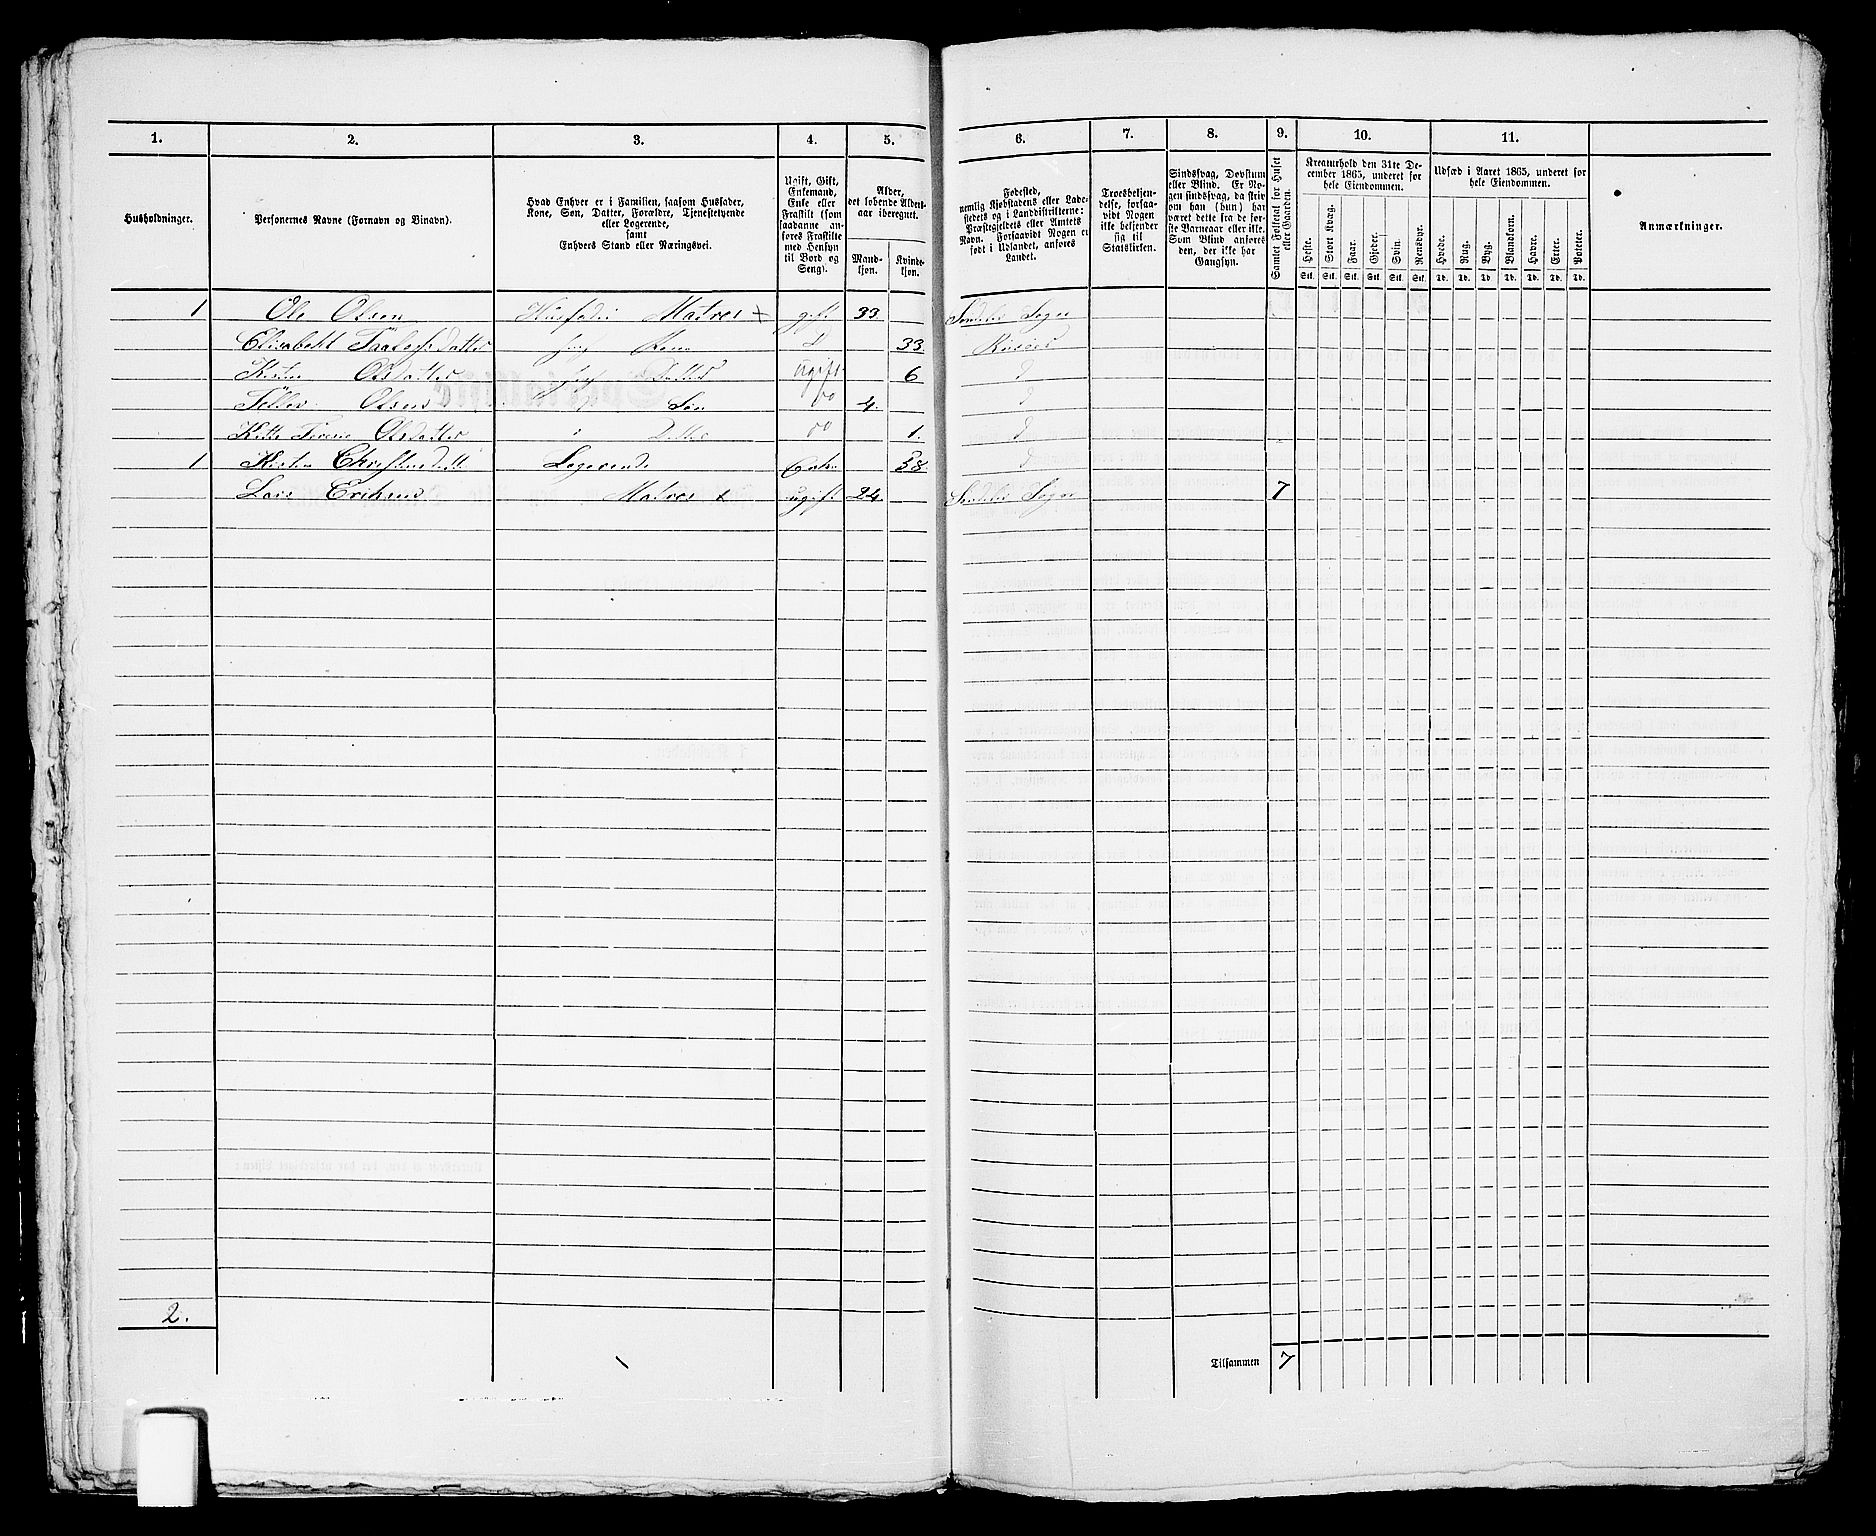 1. 2. 3. 4. 5. 6. 7. 8. 9. 10. 11.
Husholdninger.
Personernes Navne (Fornavn og Binavn).
Hvad Enhver er i Familien, saasom Husfader,
Kone, Søn, Datter, Forældre, Tjenestetyende
eller Logerende,
samt
Enhvers Stand eller Næringsvei.
Ugift, Gift,
Enkemand,
Enke eller
Fraskilt (som
saadanne an-
føres Fraskilte
med Hensyn
til Bord og
Seng).
Alder,
det løbende Alders-
aar iberegnet.
Mand-
kjøn.
Kvinde-
kjøn.
Fødested,
nemlig Kjøbstadens eller Lade-
stedets og i Landdistrikterne:
Præstegjeldets eller Amtets
Navn. Forsaavidt Nogen er
født i Udlandet, anføres
Landet.
Troesbekjen-
delse, forsaa-
vidt Nogen
ikke bekjender
sig til
Statskirken.
Sindssvag, Døvstum
eller Blind. Er No-
gen sindssvag, da skriv
om han (hun) har
været dette fra de før-
ste Barneaar eller ikke.
Som Blind anføres
den, der ikke har
Gangsyn.
Samlet Folketal for Huset
eller Gaarden.
Kreaturhold den 31te De-
cember 1865, underet for
hele Eiendommen.
Heste. Stort Kvæg. Faar. Gjeder. Svin. Rensdyr.
Stk. Stk. Stk. Stk. Stk. Stk.
Udsæd i Aaret 1865, underet for
hele Eiendommen.
Hvede. Rug. Byg. Blandkorn. Havre. Erter. Poteter.
Td. Td. Td. Td. Td. Td. Td.
Anmærkninger.
1 Ole Olsen Husfader Matros + gift 33 Søndeløv Sogn
Elisabeth Kone D 33 Risøer
Olsdatter Datter ugift 6 D
Olsen Søn do 4. D
Olsdatter Datter do 1. D
1 Logerende Enke 58 D
Lars Eriksen Matros + ugift 24 Søndeløv Sogn 7
2.
Tilsammen 7